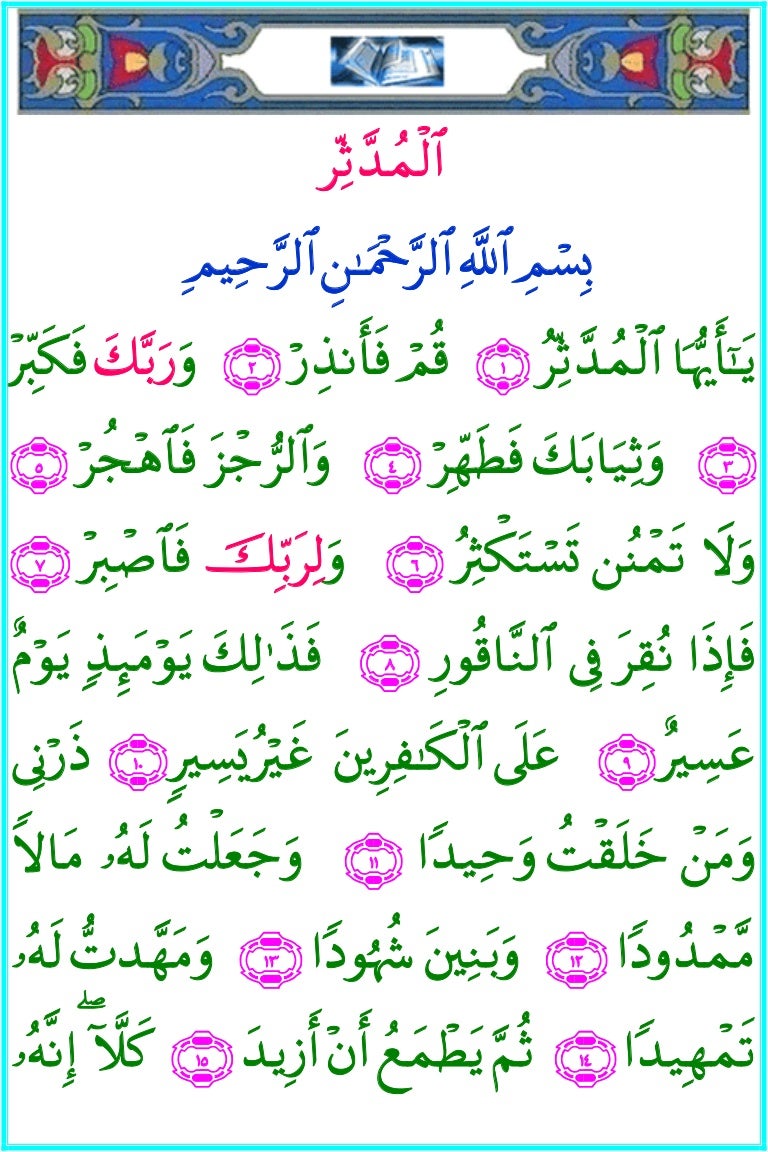 ٱلْمُدَّثِّر
بِسْمِ ٱللَّهِ ٱلرَّحْمَـٰنِ ٱلرَّحِيمِ
يَـٰٓأَيُّهَا ٱلْمُدَّثِّرُ ١ قُمْ فَأَنذِرْ ٢ وَرَبَّكَ فَكَبِّرْ
٣ وَثِيَابَكَ فَطَهِّرْ ٤ وَٱلرُّجْزَ فَٱهْجُرْ ٥
وَلَا تَمْنُن تَسْتَكْثِرُ ٦ وَلِرَبِّكَ فَٱصْبِرْ ٧
فَإِذَا نُقِرَ فِى ٱلنَّاقُورِ ٨ فَذَٰلِكَ يَوْمَئِذٍ يَوْمٌ
عَسِيرٌ ٩ عَلَى ٱلْكَـٰفِرِينَ غَيْرُ يَسِيرٍ ١٠ ذَرْنِى
وَمَنْ خَلَقْتُ وَحِيدًا ١١ وَجَعَلْتُ لَهُۥ مَالًا
مَّمْدُودًا ١٢ وَبَنِينَ شُهُودًا ١٣ وَمَهَّدتُّ لَهُۥ
تَمْهِيدًا ١٤ ثُمَّ يَطْمَعُ أَنْ أَزِيدَ ١٥ كَلَّآ ۖ إِنَّهُۥ